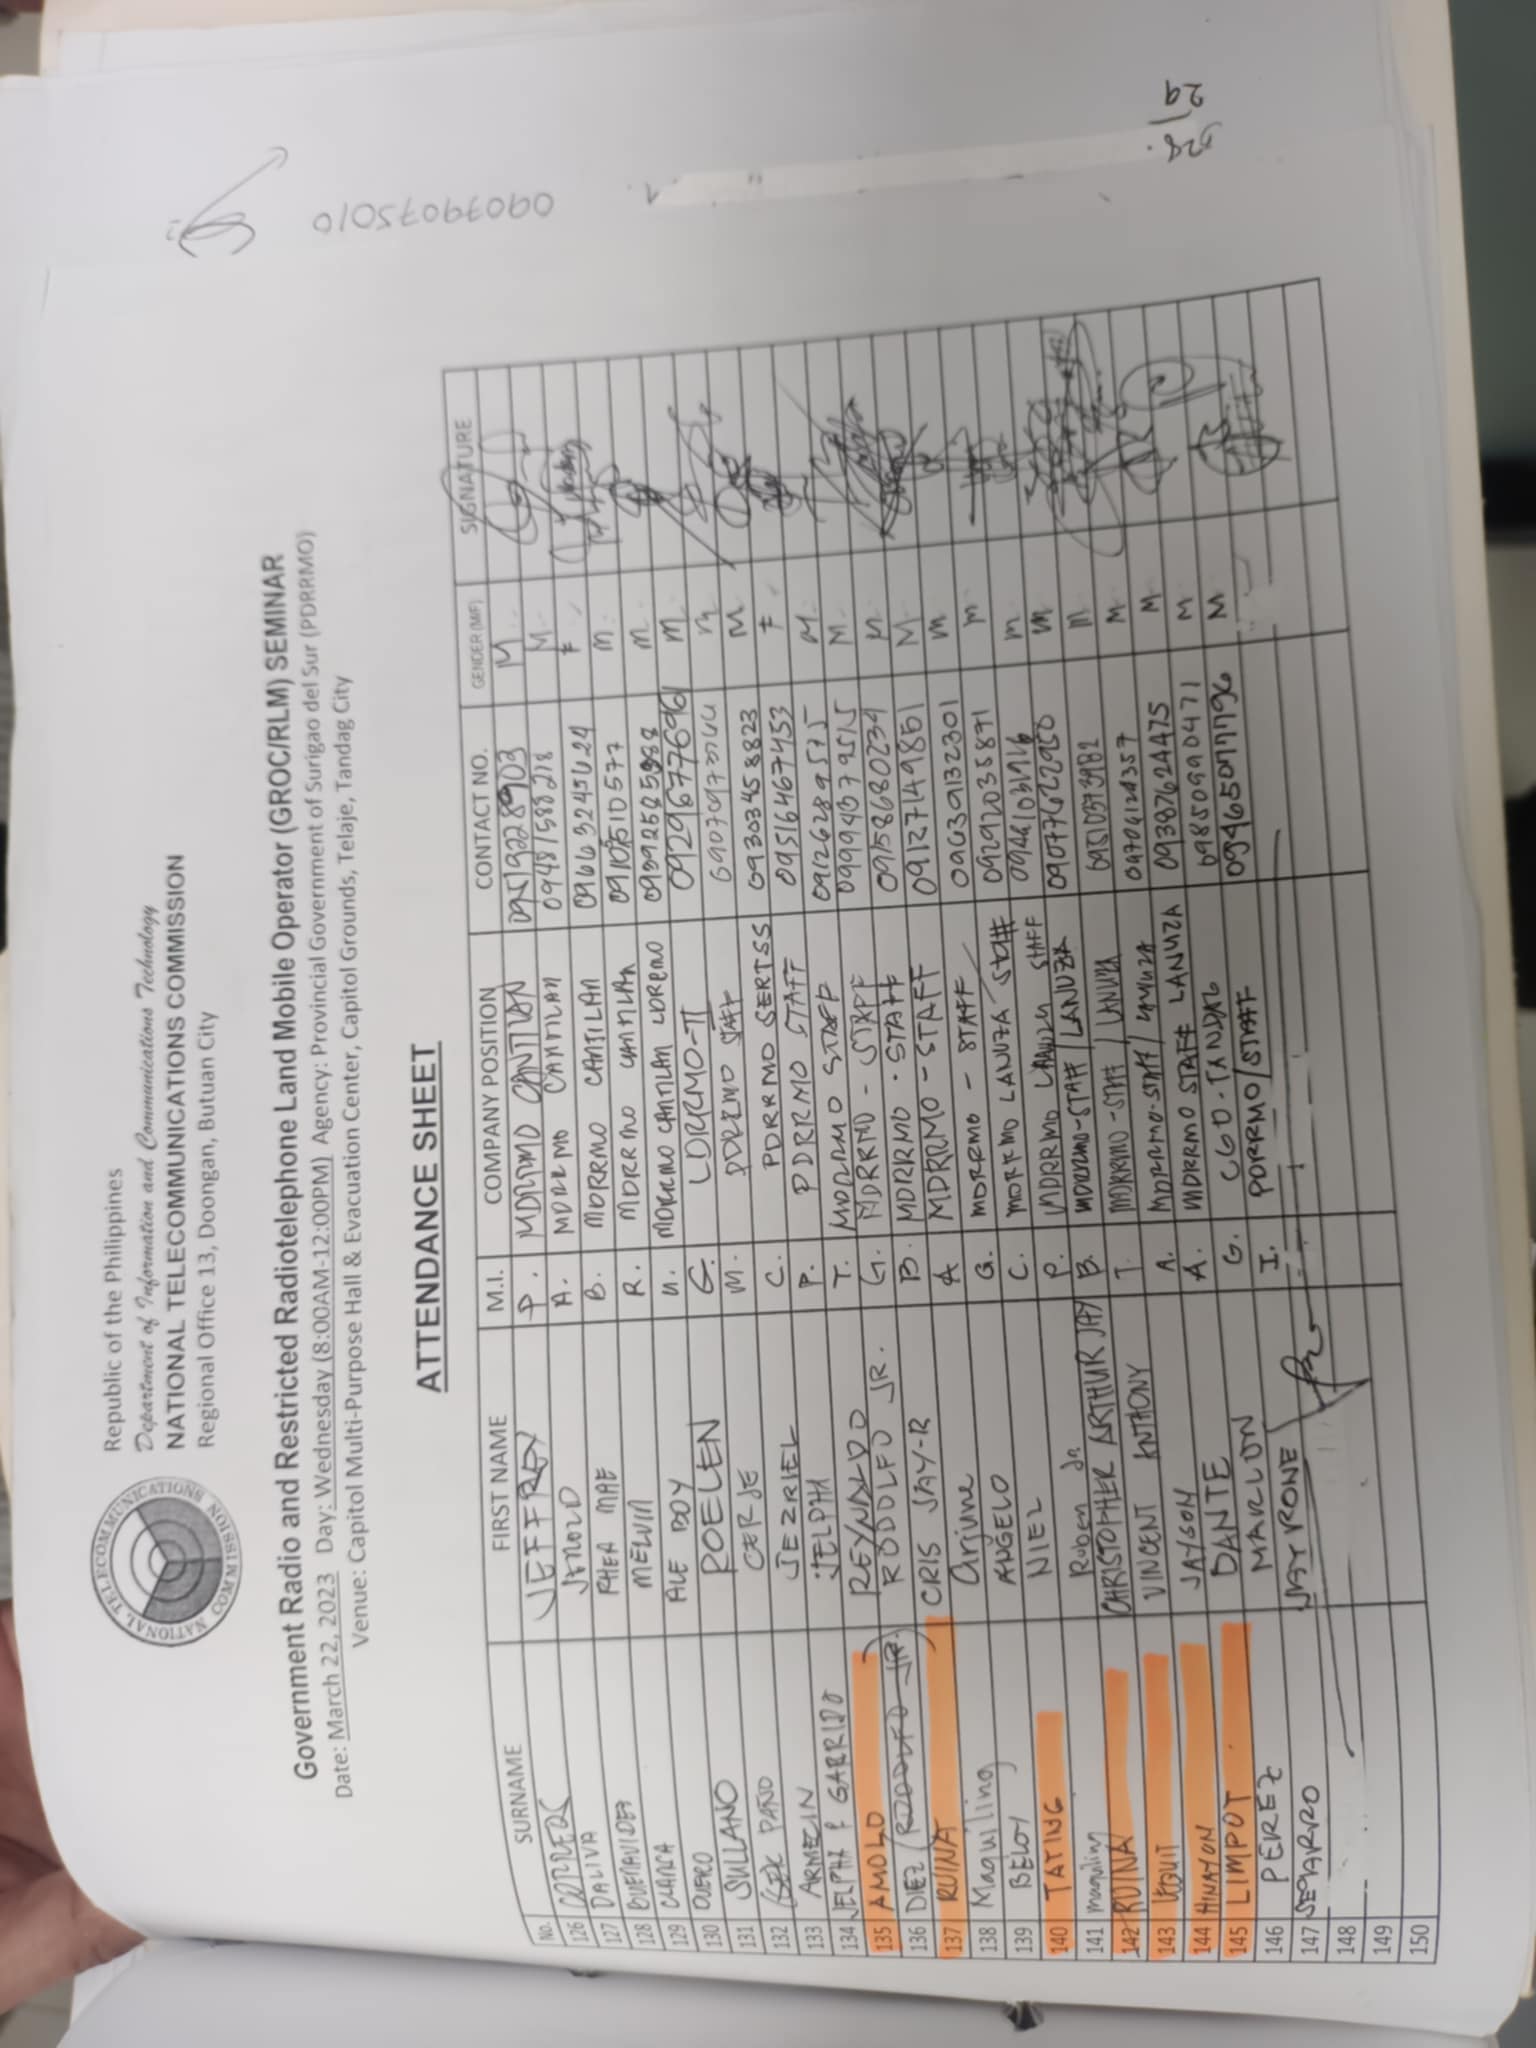 Republic of the Philippines
Department of Information and Communications Technology
NATIONAL TELECOMMUNICATIONS COMMISSION
Regional Office 13, Doongan, Butuan City
NATIONAL TELECOMMUNICATIONS COMMISSION
Government Radio and Restricted Radiotelephone Land and Mobile Operator (GROC/RLM) SEMINAR
Date: March 22, 2023 Day: Wednesday (8:00AM-12:00PM) Agency: Provincial Government of Surigao del Sur (PDRRMO)
Venue: Capitol Multi-Purpose Hall & Evacuation Center, Capitol Grounds, Telaje, Tandag City
ATTENDANCE SHEET
No. SURNAME FIRST NAME M.I. COMPANY POSITION CONTACT NO. GENDER (M/F) SIGNATURE
126 P. MDRRMO CANTILAN 09519228903 M
127 DALIVA A. MDRRMO CANTILAN M
128 BUENAVIDES RHEA MAE B. MDRRMO CANTILAN F
129 MELVIN R. MDRRMO CANTILAN M
130 OUANO ALE BOY MDRRMO CANTILAN LDRRMO M
131 SULLANO ROELEN G. LDRRMO-II 09296777696 M
132 CERJE M. PDRRMO STAFF M
133 ARMECIN JEZRIEL C. PDRRMO SERTSS 09303458823 M
134 JELPHA P GARRIDO JELPHA P. PDRRMO STAFF 09516467453 F
135 AMOLO REYNALDO T. MDRRMO STAFF 09126289575 M
136 DIEZ RODOLFO JR. G. MDRRMO - STAFF 09994379515 M
137 RUINA CRIS JAY-R B. MDRRMO - STAFF 09158680239 M
138 Maquiling Arjune A MDRRMO - STAFF 09127149851 M
139 BELOY ANGELO G. MDRRMO - STAFF 09639132301 m
140 TATING NIEL C. MDRRMO LANUZA Staff 09292035871 m
141 maquiling Ruben Jr. P. MDRRMO LANUZA STAFF m
142 RUINA CHRISTOPHER ARTHUR JAY B. MDRRMO-STAFF / LANUZA 09077622950 m
143 VINCENT ANTHONY T. MDRRMO-STAFF / LANUZA m
144 HINAYON JAYSON A. MDRRMO-STAFF / LANUZA M
145 LIMPOT DANTE A. MDRRMO STAFF LANUZA 09387624475 M
146 PEREZ MARLON G. CGO - TANDAG 09850990471 M
147 SEGARRO JAY RONE I. PDRRMO/STAFF 09465077796 M
148
149
150
09079075010